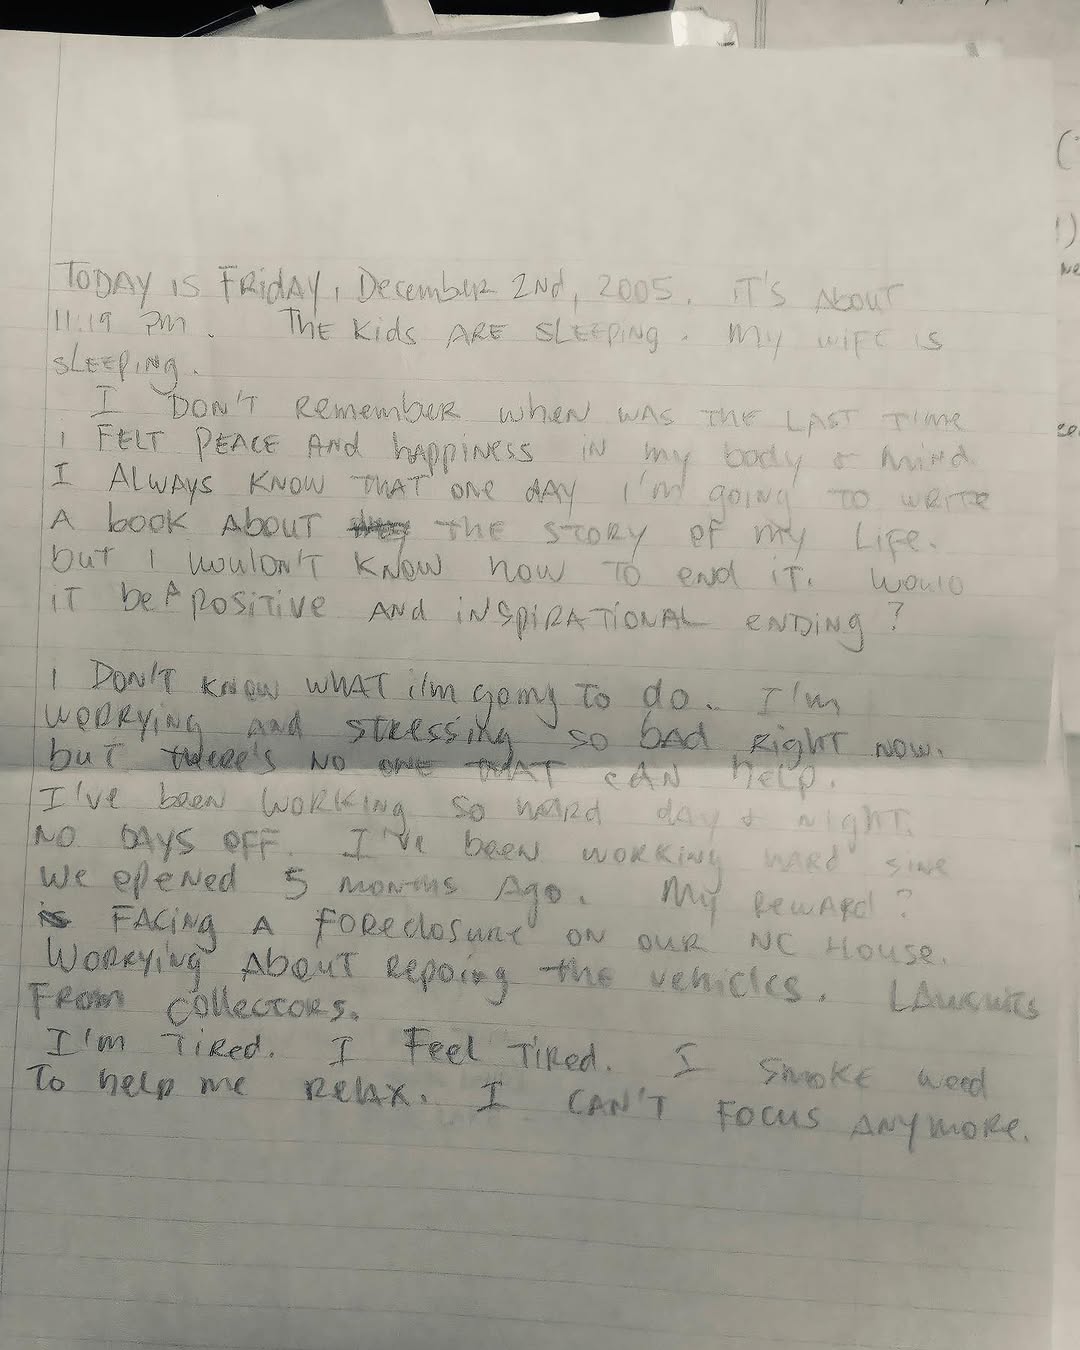 TODAY IS FRIDAY, December 2nd, 2005. IT'S ABOUT
11:19 PM. THE Kids ARE SLEEPING. My WIFE IS
SLEEPING.
I DON'T Remember when WAS THE LAST TIME
I FELT PEACE AND happiness IN my body & MIND.
I ALWAYS KNOW THAT one day I'm going TO WRITE
A book ABOUT the STORY OF my LIFE.
but I wouldn't KNOW HOW TO end IT. Would
IT be A POSITIVE AND INSPIRATIONAL ENDING?
I DON'T KNOW WHAT i'm going To do. I'm
WORRYING and stressing so bad Right NOW.
but there's NO ONE THAT CAN help.
I've been WORKING so HARD day & NIGHT.
NO DAYS OFF. I've been WORKING HARD sine
We opened 5 MONTHS Ago. My REWARD?
FACING A foreclosure ON OUR NC HOUSE.
WORRYING ABOUT repoing the vehicles. LAWSUITS
FROM collectors.
I'm TIRED. I Feel TIRED. I SMOKE weed
To help me RELAX. I CAN'T FOCUS ANYMORE.